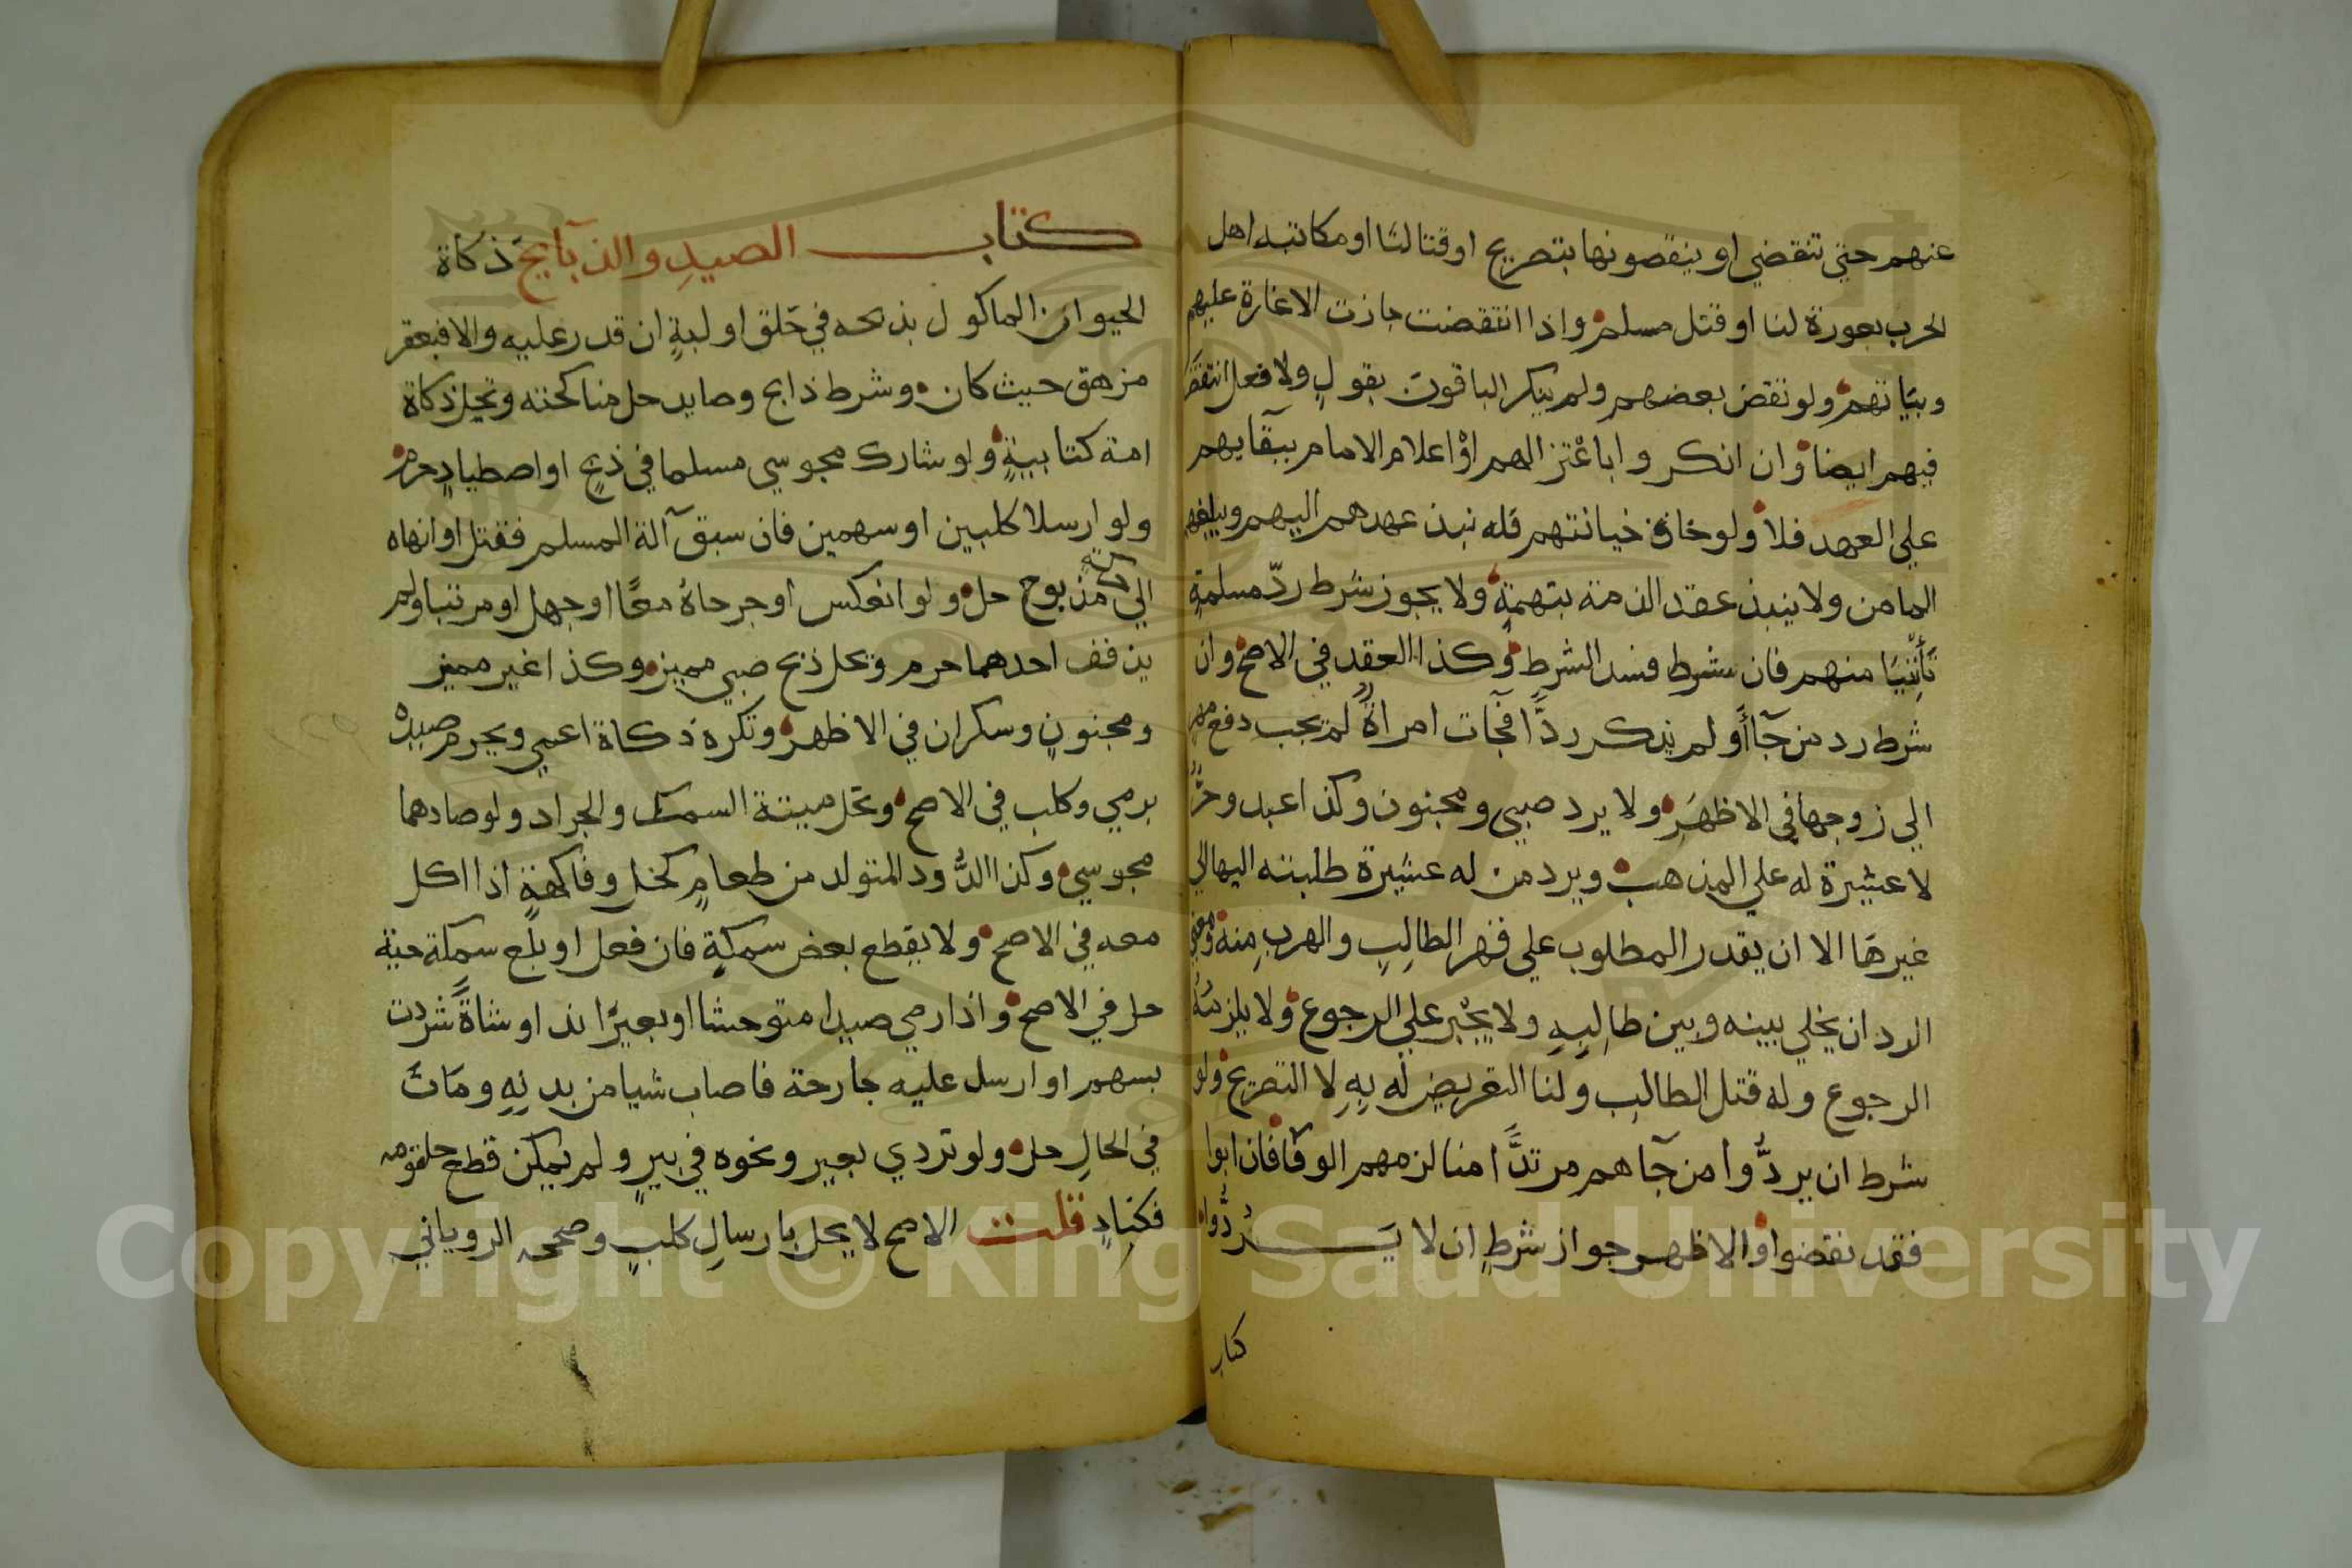 عنهم حتي تنقضي او ينقضونها بتصريح او قتالنا او مكاتبه اهل
الحرب بعورة لنا او قتل مسلم واذا انتقضت جازت الاغارة عليهم
وبياتهم ولو نقض بعضهم ولم ينكر الباقون بقولٍ ولا فعل انتقض
فيهم ايضا وان انكروا باعتزالهم او اعلام الامام ببقايهم
علي العهد فلا ولو خاف خيانتهم فله نبذ عهدهم اليهم ويبلغهم
المامن ولا ينبذ عقد الذمة بتهمةٍ ولا يجوز شرط ردّ مسلمةٍ
تأتينا منهم فان شرط فسد الشرط وكذا العقد في الاصح وان
شرط رد من جآ او لم يذكر ردًّا فجآت امراةٌ لم يجب دفع مهرٍ
الي زوجها في الاظهر ولا يرد صبي ومجنون وكذا عبد وحرٌّ
لا عشيرة له علي المذهب ويرد من له عشيرة طلبته اليها لا الي
غيرها الا ان يقدر المطلوب علي قهر الطالِبِ والهرب منه ومعني
الرد ان يخلي بينه وبين طالِبِهِ ولا يجْبر علي الرجوع ولا يلزمُهُ
الرجوع وله قتل الطالب ولنا التعريض له بِهِ لا التصريح ولو
شرط ان يردُّوا من جآهم مرتدًّا منا لزمهم الوفآ فان ابوا
فقد نقضوا والاظهر جواز شرطِ ان لا يَرُدُّواه
كتاب
كتاب الصيدِ والذبآيح ذكاة
الحيوان الماكول بذبحه في حَلق او لبةٍ ان قدر عليه والا فبعقر
مزهق حيث كان وشرط ذابح وصايد حل مناكحته وتحل ذكاة
امة كتابيةٍ ولو شارك مجوسي مسلما في ذبحٍ او اصطيادٍ حرم
ولو ارسلا كلبين او سهمين فان سبق آلة المسلم فقتل او انهاه
الي حركة مذبوح حل ولو انعكس او جرحاهُ معًا او جهل او مرتبا ولم
يذفف احدهما حرم وتحل ذبح صبي مميز وكذا غير مميز
ومجنونٍ وسكران في الاظهر وتكره ذكاة اعمي ويحرم صيدهُ
برمي وكلب في الاصح وتحل ميتة السمك والجراد ولو صادهما
مجوسي وكذا الدُّود المتولد من طعامٍ كخل وفاكهةٍ اذا اكل
معه في الاصح ولا يقطع بعض سمكةٍ فان فعل او بلع سمكة حية
حل في الاصح واذا رمي صيدا متوحشا او بعيرًا ند او شاةً شردت
بسهم او ارسل عليه جارحة فاصاب شيا من بدنِهِ ومَاتَ
في الحالِ حل ولو تردي بعير ونحوه في بيرٍ ولم يمكن قطع حلقومه
فكنادٍ قلت الاصح لا يحل بارسالِ كلبٍ وصححه الروياني
Copyright © King Saud University